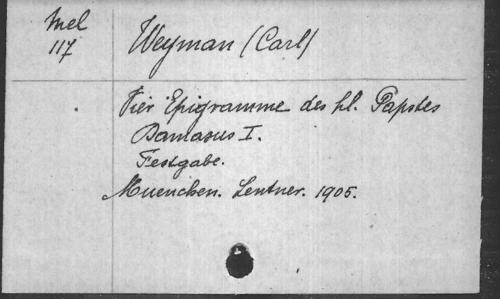 Mel
117
Weyman (Carl)
Vier Epigramme des hl. Papstes
Damasus I.
Festgabe.
Muenchen. Lentner. 1905.